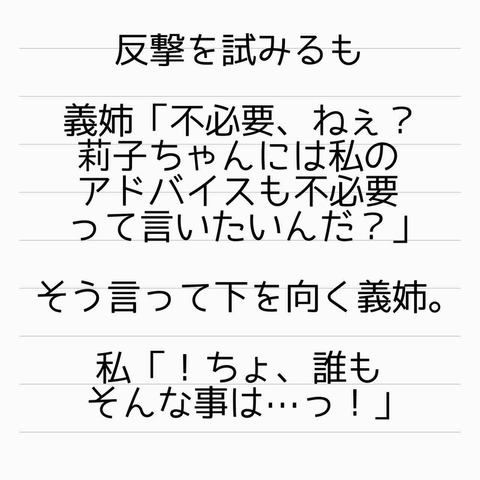 反撃を試みるも
義姉「不必要、ねぇ？
莉子ちゃんには私の
アドバイスも不必要
って言いたいんだ？」
そう言って下を向く義姉。
私「！ちょ、誰も
そんな事は…っ！」